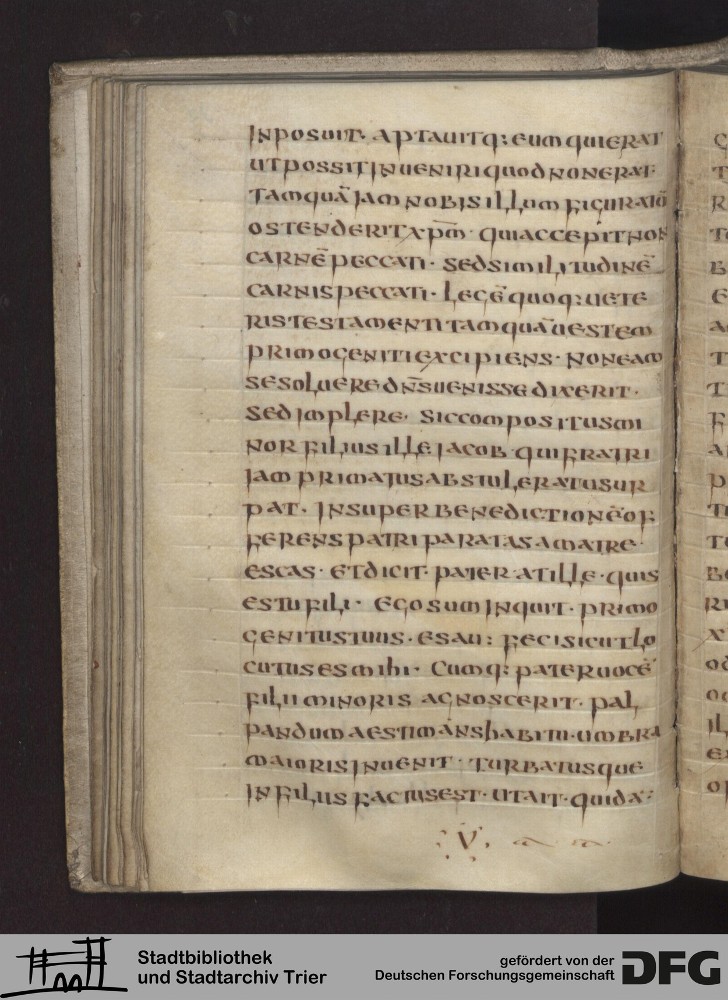 INPOSUIT· APTAUITQ: EUM QUI ERAT
UT POSSIT INUENIRI QUOD NON ERAT
TAMQUĀ IAM NOBIS ILLUM FIGURATŌ
OSTENDERIT XPM̄· QUI ACCEPIT NON
CARNĒ PECCATI· SED SIMILITUDINĒ
CARNIS PECCATI· LEGĒ QUOQ: UETE
RIS TESTAMENTI TAMQUĀ UESTEM
PRIMOGENITI EXCIPIENS· NON EAM
SE SOLUERE DN̄S UENISSE DIXERIT·
SED IMPLERE· SIC COMPOSITUS MI
NOR FILIUS ILLE IACOB QUI FRATRI
IAM PRIMATUS ABSTULERAT USUR
PAT· INSUPER BENEDICTIONĒ OF
FERENS PATRI PARATAS A MATRE·
ESCAS· ET DICIT· PATER AT ILLE· QUIS
ES TU FILI· EGO SUM INQUIT· PRIMO
GENITUS TUUS· ESAU: FECI SICUT LO
CUTUS ES MIHI· CUMQ: PATER UOCĒ
FILII MINORIS AGNOSCERIT· PAL
PANDUM AESTIMANS HABITU· UMBRA
MAIORIS INUENIT· TURBATUSQUE
IN FILIIS FACTUS EST· UT AIT· QUIDĀ:
V
Stadtbibliothek
und Stadtarchiv Trier
gefördert von der
Deutschen Forschungsgemeinschaft
DFG